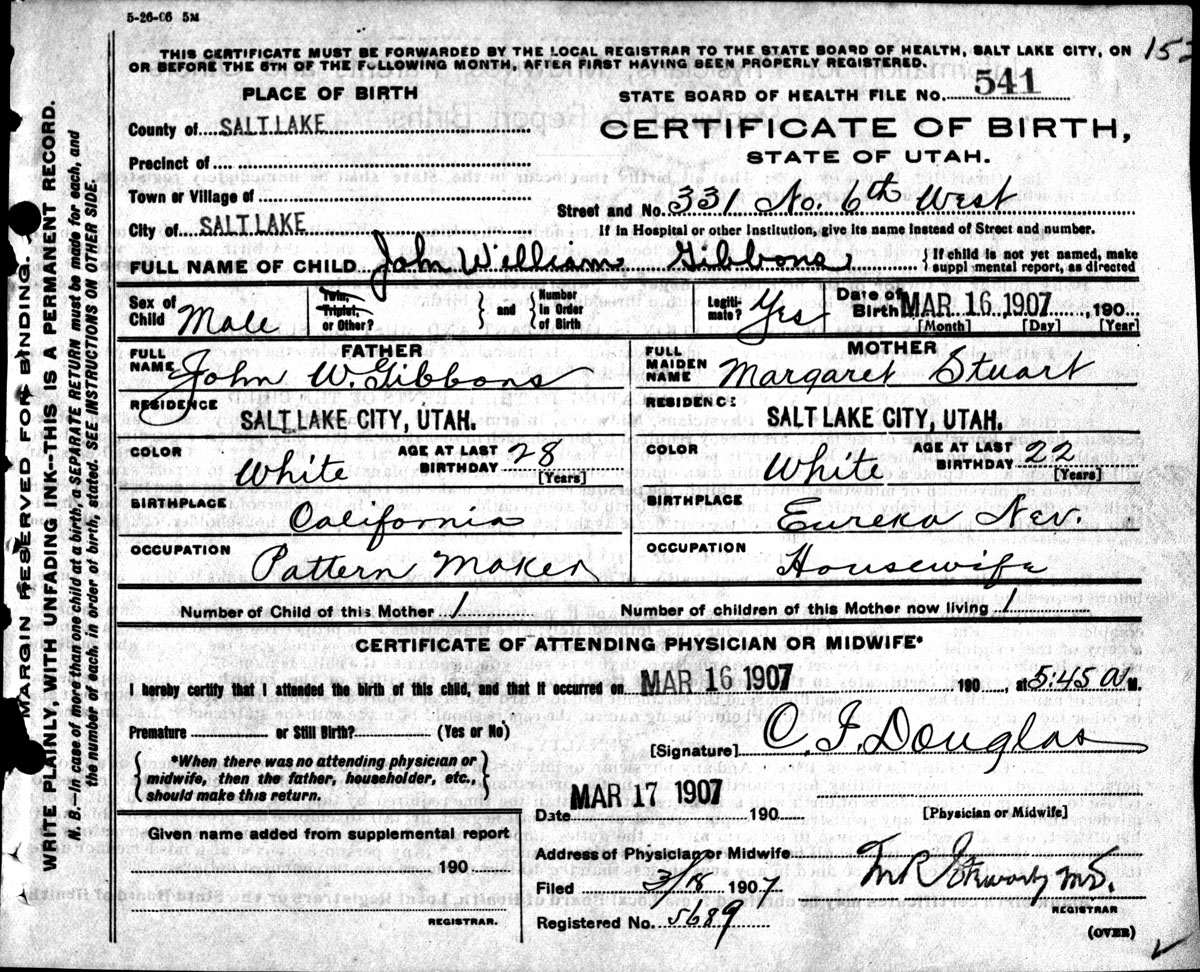 5-26-06 5M
THIS CERTIFICATE MUST BE FORWARDED BY THE LOCAL REGISTRAR TO THE STATE BOARD OF HEALTH, SALT LAKE CITY, ON
OR BEFORE THE 5TH OF THE FOLLOWING MONTH, AFTER FIRST HAVING BEEN PROPERLY REGISTERED.
PLACE OF BIRTH
STATE BOARD OF HEALTH FILE NO. 541
County of SALT LAKE
CERTIFICATE OF BIRTH,
STATE OF UTAH.
Precinct of
Town or Village of
Street and No. 331 No. 6th West
City of SALT LAKE
If in Hospital or other Institution, give its name instead of Street and number.
FULL NAME OF CHILD John William Gibbons { If child is not yet named, make
suppl mental report, as directed
Sex of Child Male
Twin, Triplet, or Other? } and { Number in Order of Birth
Legiti-mate? Yes
Date of Birth MAR 16 1907, 190
[Month] [Day] [Year]
FATHER
FULL NAME John W. Gibbons
RESIDENCE
SALT LAKE CITY, UTAH.
COLOR White AGE AT LAST BIRTHDAY 28
[Years]
BIRTHPLACE
California
OCCUPATION
Pattern Maker
MOTHER
FULL MAIDEN NAME Margaret Stuart
RESIDENCE
SALT LAKE CITY, UTAH.
COLOR White AGE AT LAST BIRTHDAY 22
[Years]
BIRTHPLACE
Eureka Nev.
OCCUPATION
Housewife
Number of Child of this Mother 1 Number of children of this Mother now living 1
CERTIFICATE OF ATTENDING PHYSICIAN OR MIDWIFE*
I hereby certify that I attended the birth of this child, and that it occurred on MAR 16 1907 190, at 5:45 A M.
Premature or Still Birth? (Yes or No)
[Signature] C. F. Douglas
[Physician or Midwife]
{ *When there was no attending physician or
midwife, then the father, householder, etc.,
should make this return. }
MAR 17 1907
Date 190
Given name added from supplemental report
190
REGISTRAR.
Address of Physician or Midwife
Filed 3/18 1907
M.D.
REGISTRAR
Registered No. 5689
(OVER)
MARGIN RESERVED FOR BINDING.
WRITE PLAINLY, WITH UNFADING INK--THIS IS A PERMANENT RECORD.
N. B.--In case of more than one child at a birth, a SEPARATE RETURN must be made for each, and
the number of each, in order of birth, stated. SEE INSTRUCTIONS ON OTHER SIDE.